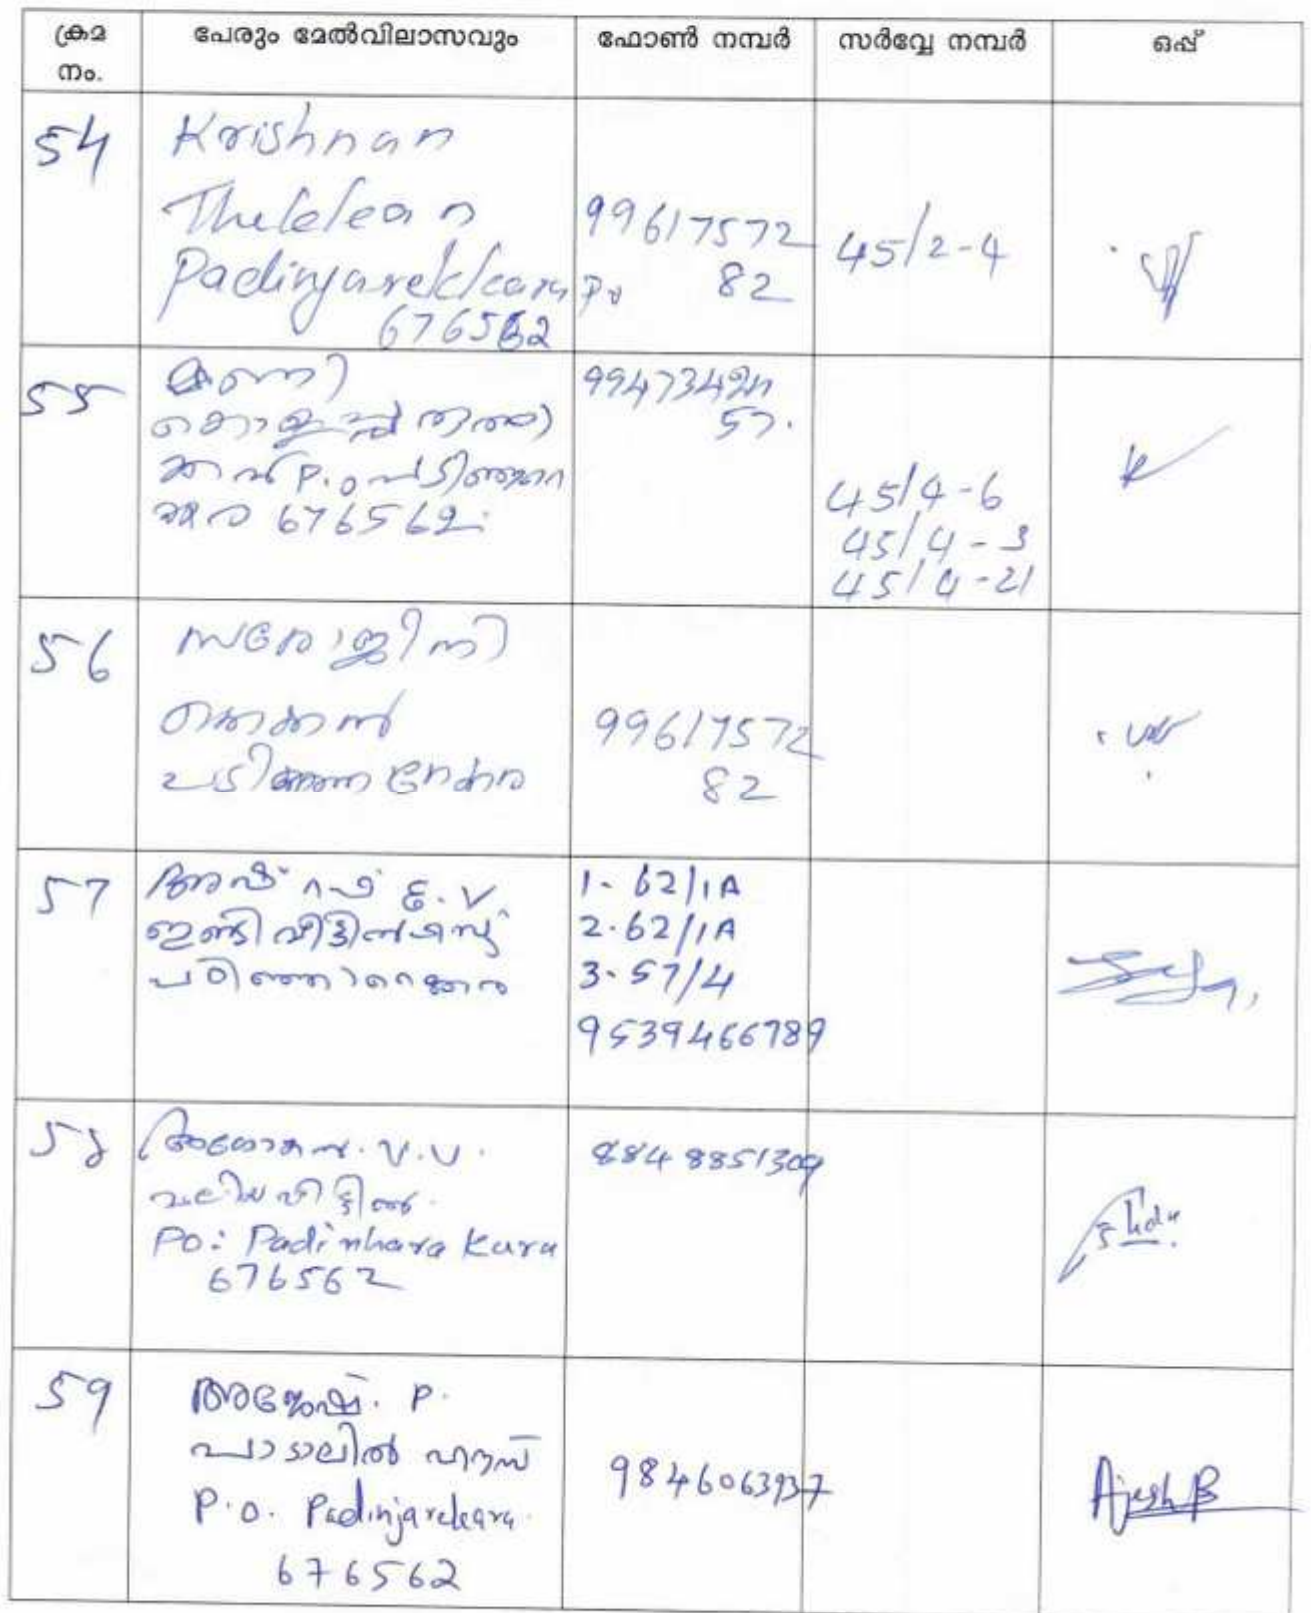 ക്രമ
നം.
പേരും മേൽവിലാസവും
ഫോൺ നമ്പർ
സർവ്വേ നമ്പർ
ഒപ്പ്
54
Krishnan
Thekkan
Padinjarekkara Po
676562
99617572
82
45/2-4
55
P.O
676562
57.
45/4-6
45/4-3
45/4-21
56
സരോജിനി
തെക്കൻ
പടിഞ്ഞാറേക്കര
99617572
82
57
അഷ്റഫ് E.V.
പടിഞ്ഞാറെക്കര
1- 62/1A
2. 62/1A
3- 57/4
9539466789
58
അശോകൻ. V.V.
വലിയവീട്ടിൽ.
PO: Padinhara Kara
676562
8848851309
59
അജേഷ്. P.
പാടാലിൽ ഹൗസ്
P.O. Padinjarekara
676562
9846063937
Ajesh P